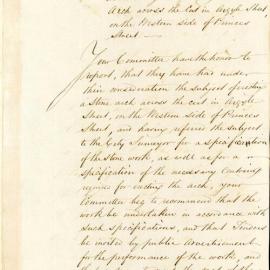 Arch across the Cut in Argyle Street,
on the Western side of Princes
Street.
Your Committee have the honor to
report, that they have had under
their consideration the subject of erecting
a Stone arch across the cut in Argyle
Street, on the Western side of Princes
Street, and having referred the subject
to the City Surveyor for a specification
of the stone work, as well as for a
specification of the necessary Centering
required for erecting the arch, your
Committee beg to recommend that the
work be undertaken in accordance with
such specifications, and that Tenders
be invited by public Advertisement
for the performance of the work, and